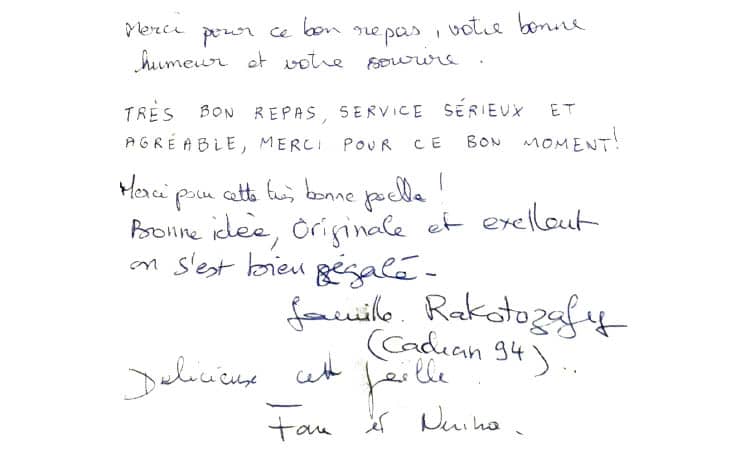 Merci pour ce bon repas, votre bonne
humeur et votre sourire.
TRÈS BON REPAS, SERVICE SÉRIEUX ET
AGRÉABLE, MERCI POUR CE BON MOMENT!
Merci pour cette très bonne paella!
Bonne idée, originale et exellent
on s'est bien régalé-
famille. Rakotozafy
(Cachan 94)..
Delicieuse cette
et